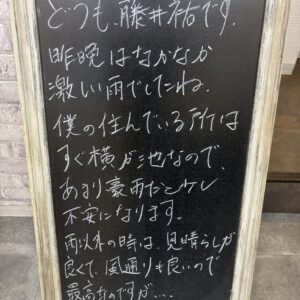 どうも、藤井祐です。
昨晩はなかなか
激しい雨でしたね。
僕の住んでいる所は
すぐ横が池なので、
あまり豪雨だと少し
不安になります。
雨以外の時は、見晴らしが
良くて、風通りも良いので
最高なのですが、、、